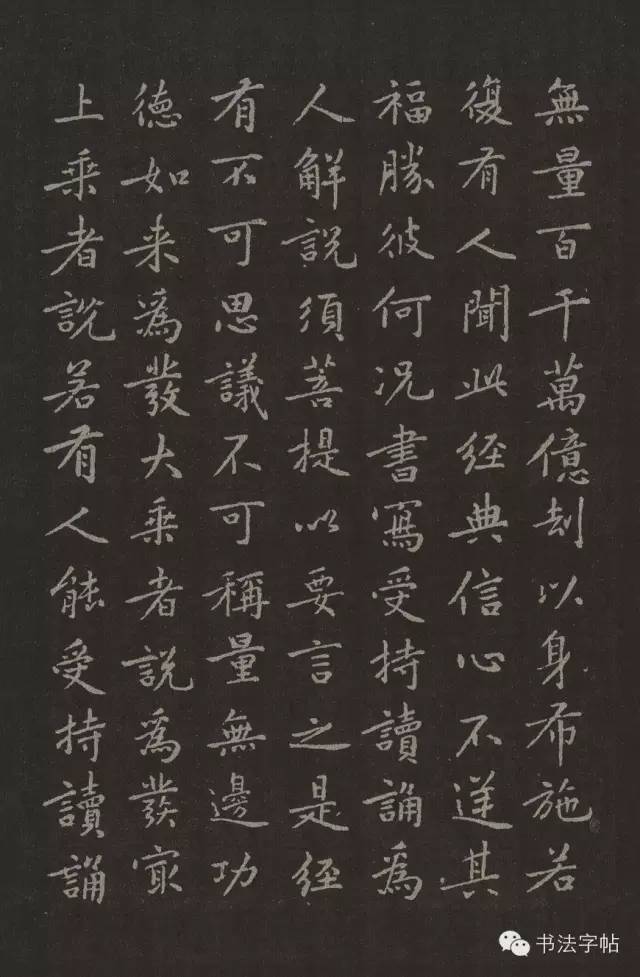 無量百千萬億刦以身布施若
復有人聞此經典信心不逆其
福勝彼何況書寫受持讀誦為
人解說須菩提以要言之是經
有不可思議不可稱量無邊功
德如来為發大乘者說為發冣
上乘者說若有人能受持讀誦
书法字帖